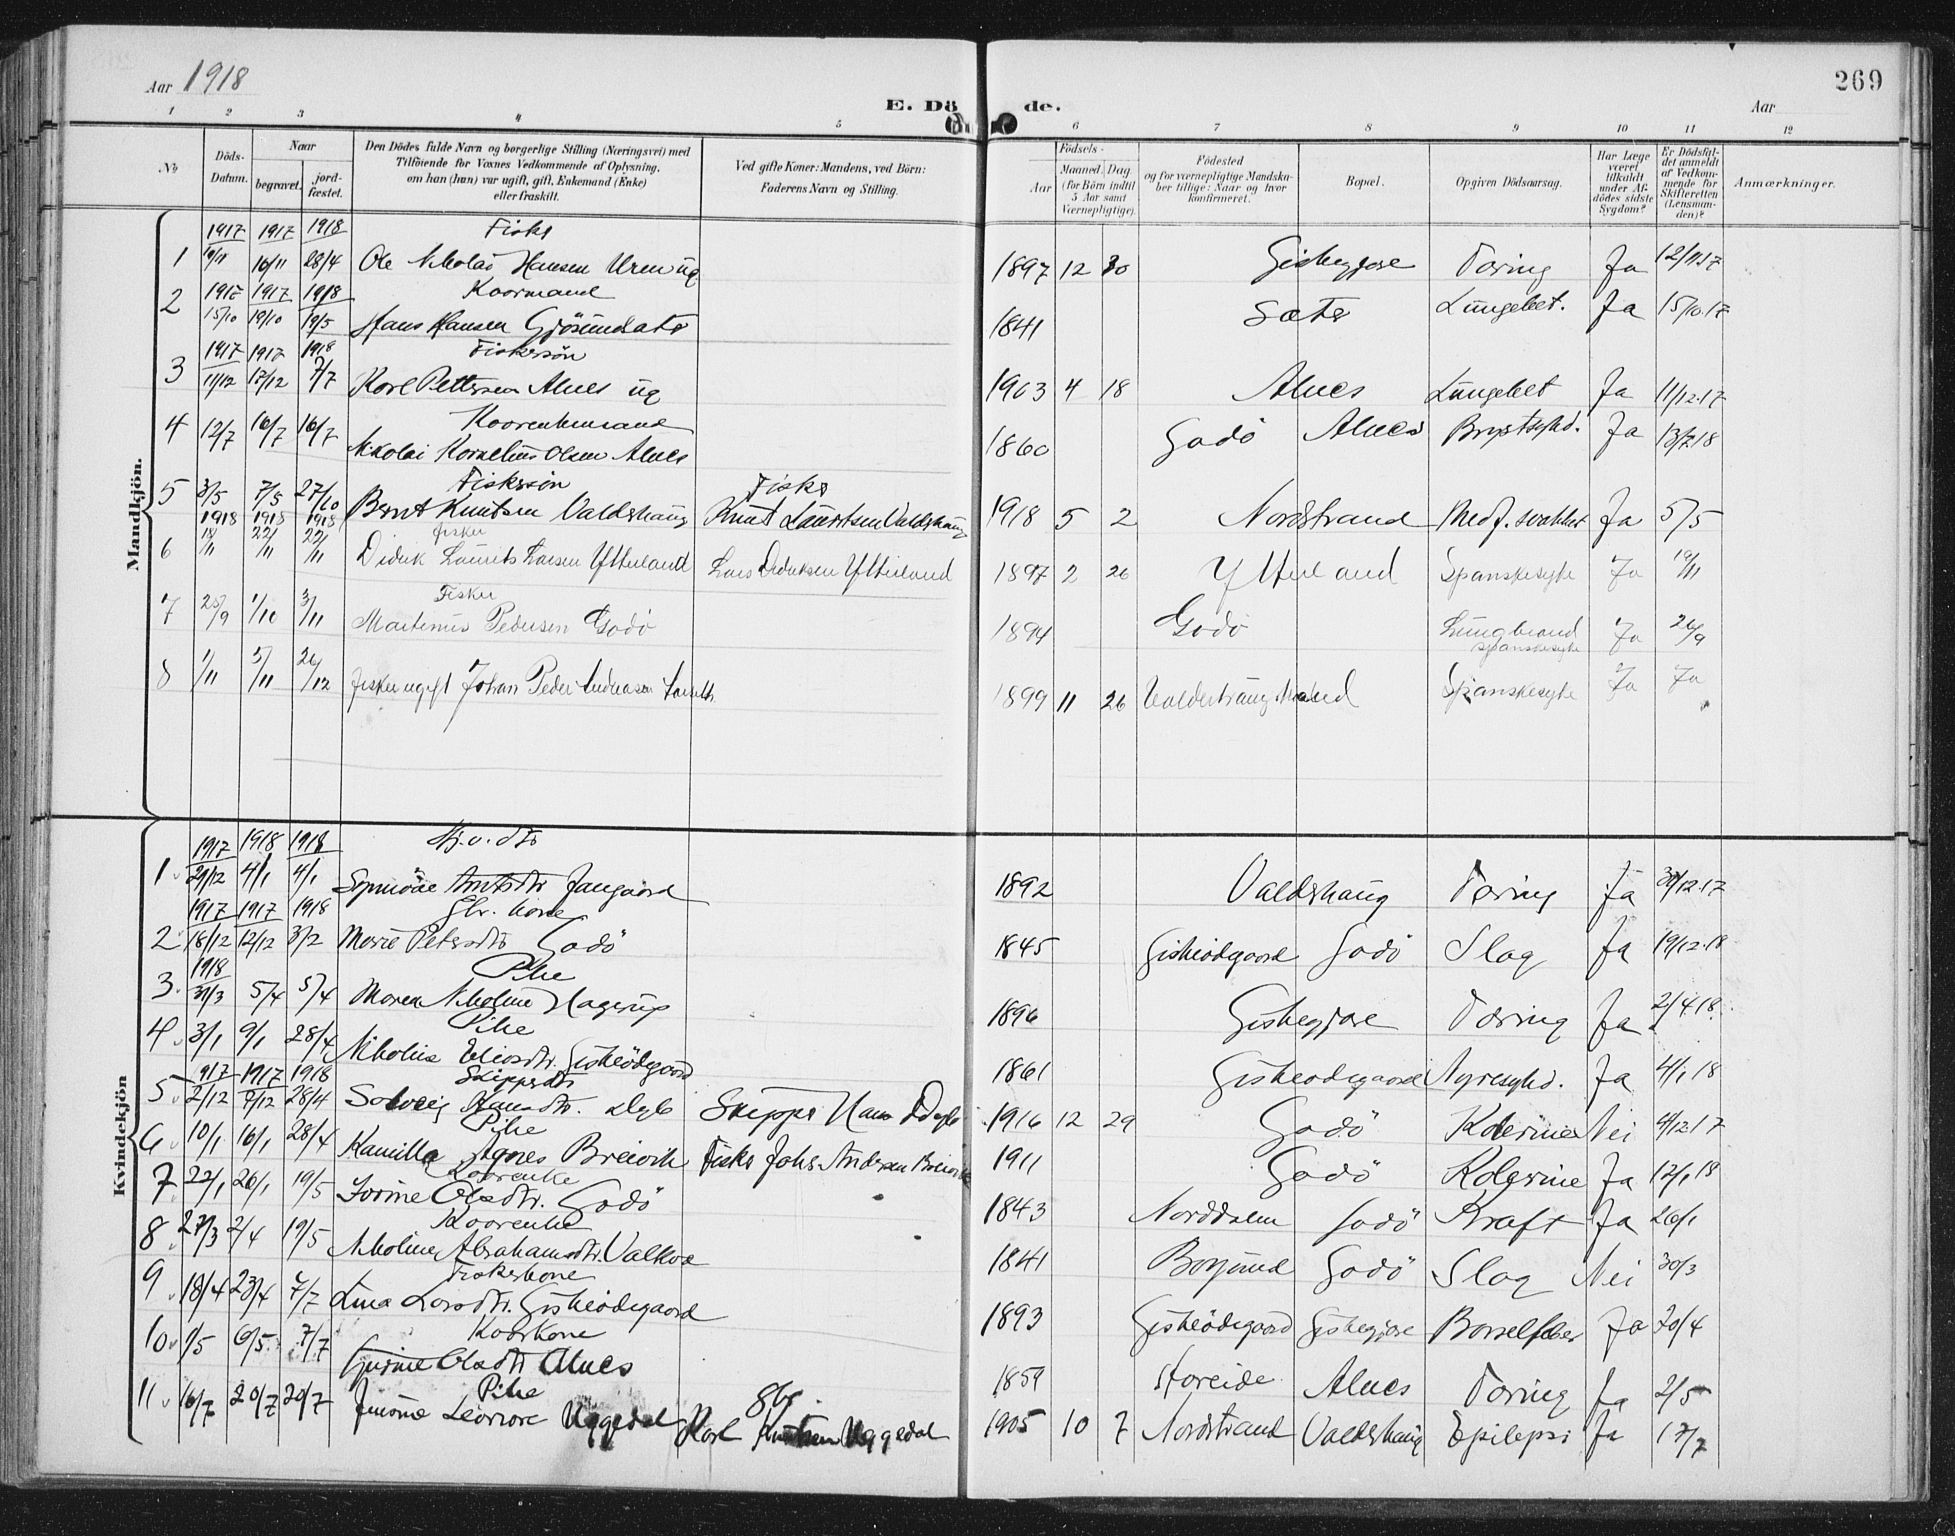 Aar 1918
E. Dö de.
Aar
269
1 2 3 4 5 6 7 8 9 10 11 12
No
Döds-Datum.
Naar
begravet.
jord-fæstet.
Den Dödes fulde Navn og borgerlige Stilling (Næringsvei) med
Tilföiende for Voxnes Vedkommende af Oplysning,
om han (hun) var ugift, gift, Enkemand (Enke)
eller fraskilt.
Ved gifte Koner: Mandens, ved Börn:
Faderens Navn og Stilling.
Födsels-
Aar
Maaned. Dag.
(for Börn indtil
5 Aar samt
Værnepligtige)
Födested
og for værnepligtige Mandska-
ber tillige: Naar og hvor
konfirmeret.
Bopæl.
Opgiven Dödsaarsag.
Har Læge
været
tilkaldt
under Af-
dödes sidste
Sygdom?
Er Dödsfal-
det anmeldt
af Vedkom-
mende for
Skifteretten
(Lensman-
den)?
Anmærkninger.
Mandkjön.
1917 1917 1918 Fisker
1 16/11 28/4 Ole Nikolai Hansen Uren ug 1897 12 30 Giskegjøre Tæring Ja 12/11 17
1917 1917 1918 Kaarmand
2 15/10 19/10 19/5 Hans Hansen Gjøsundsæter 1841 Sæter Lungebet. Ja 15/10.17
1917 1917 1918 Fiskersøn
3 11/12 17/12 7/7 Karl Pettersen Alnes ug 1903 4 18 Alnes Lungebet Ja 11/12.17
Kaarenkemand
4 12/7 16/7 16/7 Nikolai Kornelius Olsen Alnes 1860 Godö Alnes Brystsykd. Ja 13/7 18
Fiskersøn Fisker
5 3/5 7/5 27/10 Bernt Knutsen Valdshaug Knut Lauritsen Valdshaug 1918 5 2 Nordstrand Medf. svakhet Ja 5/5
1918 1918 1918 Fisker
6 18/11 22/11 22/11 Didrik Laurits Larsen Ytterland Lars Didriksen Ytterland 1897 2 26 Ytterland Spanskesyke Ja 19/11
Fisker
7 25/9 1/10 3/11 Martinus Pedersen Godö 1894 Godö Lungbrand spanskesyke Ja 26/9
8 1/11 5/11 26/12 fisker ugift Johan Peder Andreasen 1899 11 26 Spanskesyke Ja Ja
Kvindekjön
1917 1918 1918
1 29/12 4/1 4/1 Jangaard 1892 Valdshaug Tæring Ja 30/12.17
1917 1917 1918
2 18/12 12/12 3/2 Marie Petersdtr Godö 1845 Giskeödegaard Godö Slag Ja 19/12.18
1918 Pike
3 31/3 5/4 5/4 Maren Nikoline Hagerup 1896 Giskegjøre Tæring Ja 2/4 18
Pike
4 3/1 9/1 28/4 Nikoline Eliasdtr. Giskeödegaard 1861 Giskeodegaard Nyresykd. Ja 4/1 18
917 1917 1918 Skippersdtr
5 2/12 7/12 28/4 Solveig Hansdtr. Dyb Skipper Hans Dyb 1916 12 29 Godö Kolerine Nei 4/12 17
Pike
6 10/1 16/1 28/4 Kamilla Agnes Breivik Fisker Johs Andersen Breivik 1911 Godö Kolerine Ja 12/1 18
Kaarenke
7 22/1 26/1 19/5 Jorine Olsdtr. Godö 1843 Norddalen Godö Kraft Ja 26/1
Kaarenke
8 27/3 2/4 19/5 Nikoline Abrahamsdtr. Valkvæ 1841 Borgund Godö Slag Nei 30/3
Fiskerkone
9 18/4 23/4 7/7 Lina Larsdtr. Giskeödegaard 1893 Giskeödegaard Giskegjøre Barselfeber Ja 20/4
Kaarkone
10 1/5 6/5 7/7 Gurine Olsdtr Alnes 1859 Storeide Alnes Tæring Ja 2/5
Pike Gbr.
11 16/7 20/7 20/7 Leonore Uggedal Karl Knutsen Uggedal 1905 10 7 Nordstrand Valdshaug Epilepsi Ja 17/7